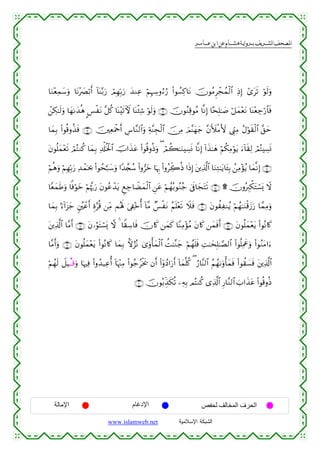 المصحف الشريف برواية هشام عن ابن عامر
وَلَوْ تَرَىٰ إِذِ الْمُجْرِمُونَ نَاكِسُوا رُءُوسِهِمْ عِندَ رَبِّهِمْ رَبَّنَا أَبْصَرْنَا وَسَمِعْنَا
فَارْجِعْنَا نَعْمَلْ صَالِحًا إِنَّا مُوقِنُونَ ۝ وَلَوْ شِئْنَا لَآتَيْنَا كُلَّ نَفْسٍ هُدَاهَا وَلَٰكِنْ
حَقَّ الْقَوْلُ مِنِّي لَأَمْلَأَنَّ جَهَنَّمَ مِنَ الْجِنَّةِ وَالنَّاسِ أَجْمَعِينَ ۝ فَذُوقُوا بِمَا
نَسِيتُمْ لِقَاءَ يَوْمِكُمْ هَٰذَا إِنَّا نَسِينَاكُمْ وَذُوقُوا عَذَابَ الْخُلْدِ بِمَا كُنتُمْ تَعْمَلُونَ
۝ إِنَّمَا يُؤْمِنُ بِآيَاتِنَا الَّذِينَ إِذَا ذُكِّرُوا بِهَا خَرُّوا سُجَّدًا وَسَبَّحُوا بِحَمْدِ رَبِّهِمْ وَهُمْ
لَا يَسْتَكْبِرُونَ ۩ ۝ تَتَجَافَىٰ جُنُوبُهُمْ عَنِ الْمَضَاجِعِ يَدْعُونَ رَبَّهُمْ خَوْفًا وَطَمَعًا
وَمِمَّا رَزَقْنَاهُمْ يُنفِقُونَ ۝ فَلَا تَعْلَمُ نَفْسٌ مَّا أُخْفِيَ لَهُم مِّن قُرَّةِ أَعْيُنٍ جَزَاءً بِمَا
كَانُوا يَعْمَلُونَ ۝ أَفَمَن كَانَ مُؤْمِنًا كَمَن كَانَ فَاسِقًا لَّا يَسْتَوُونَ ۝ أَمَّا الَّذِينَ
ءَامَنُوا وَعَمِلُوا الصَّالِحَاتِ فَلَهُمْ جَنَّاتُ الْمَأْوَىٰ نُزُلًا بِمَا كَانُوا يَعْمَلُونَ ۝ وَأَمَّا
الَّذِينَ فَسَقُوا فَمَأْوَاهُمُ النَّارُ كُلَّمَا أَرَادُوا أَن يَخْرُجُوا مِنْهَا أُعِيدُوا فِيهَا وَقِيلَ لَهُمْ
ذُوقُوا عَذَابَ النَّارِ الَّذِي كُنتُم بِهِ تُكَذِّبُونَ ۝
الحرف المخالف لحفص الإدغام الإمالة
الشبكة الإسلامية www.islamweb.net